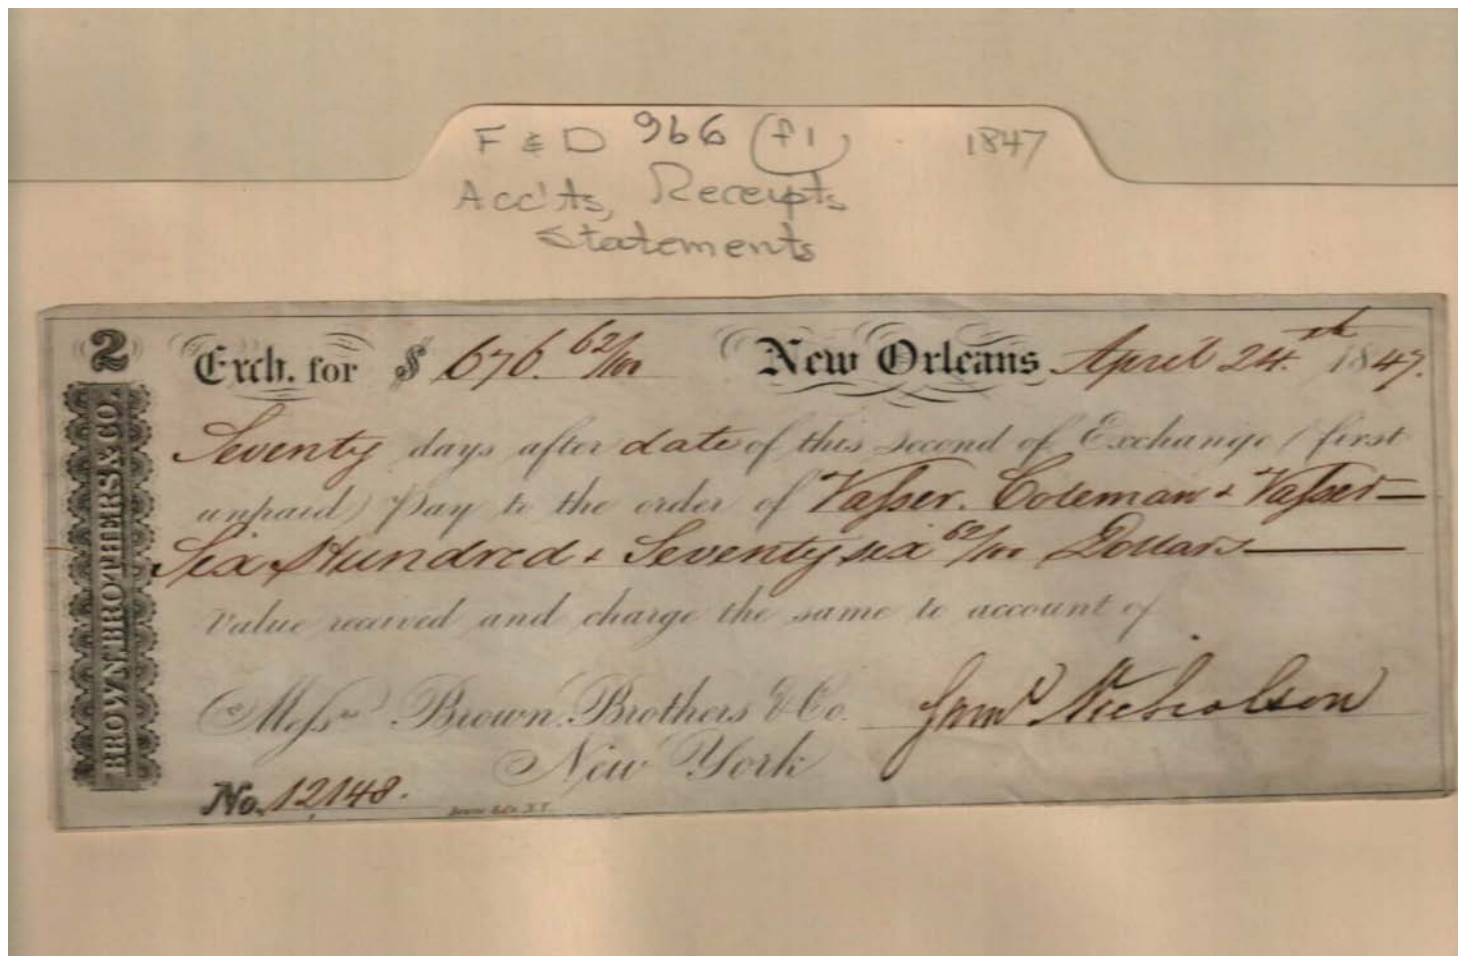 F & D 966 (f1) 1847
Acc'ts, Receipts
Statements
2
BROWN BROTHERS & CO.
Exch. for $ 676. 62/100 New Orleans April 24.th 1847.
Seventy days after date of this second of Exchange (first
unpaid) Pay to the order of Vasser. Coleman + Vasser
Six Hundred + Seventy six 62/100 Dollars
Value received and charge the same to account of
Messrs Brown Brothers & Co. Saml Nicholson
New York
No. 12,148.